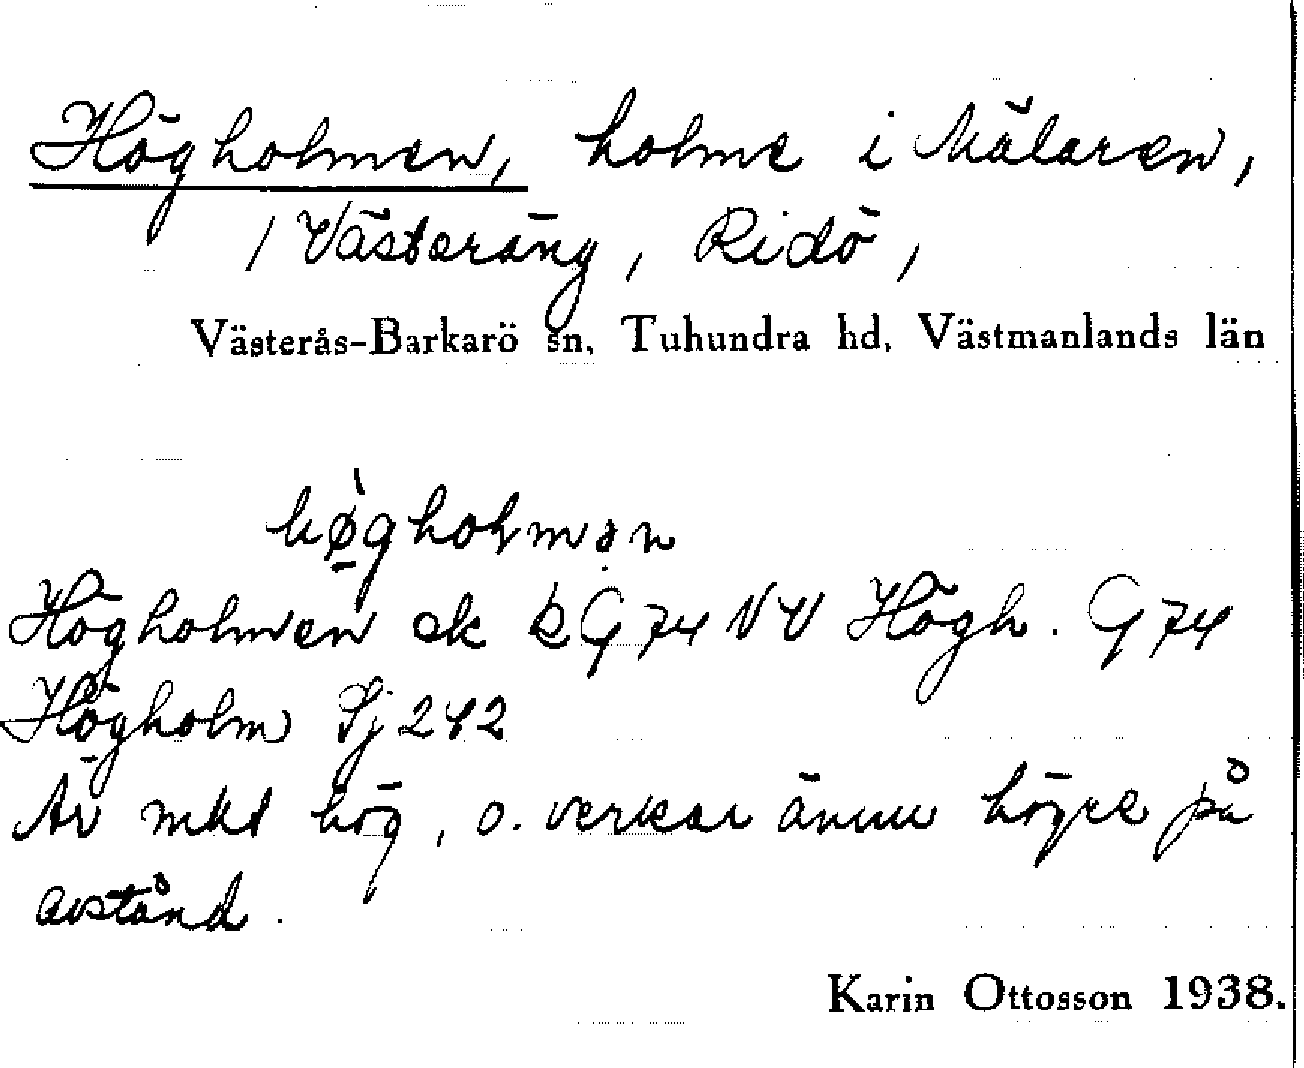 Högholmen, holme i Mälaren,
/ Västeräng, Ridö,
Västerås-Barkarö sn, Tuhundra hd, Västmanlands län
hø̀gholmən
Högholmen ek k G 74 NV Högh. G 74
Högholm Sj 242
Är mkt hög, o. verkar ännu högre på
avstånd.
Karin Ottosson 1938.